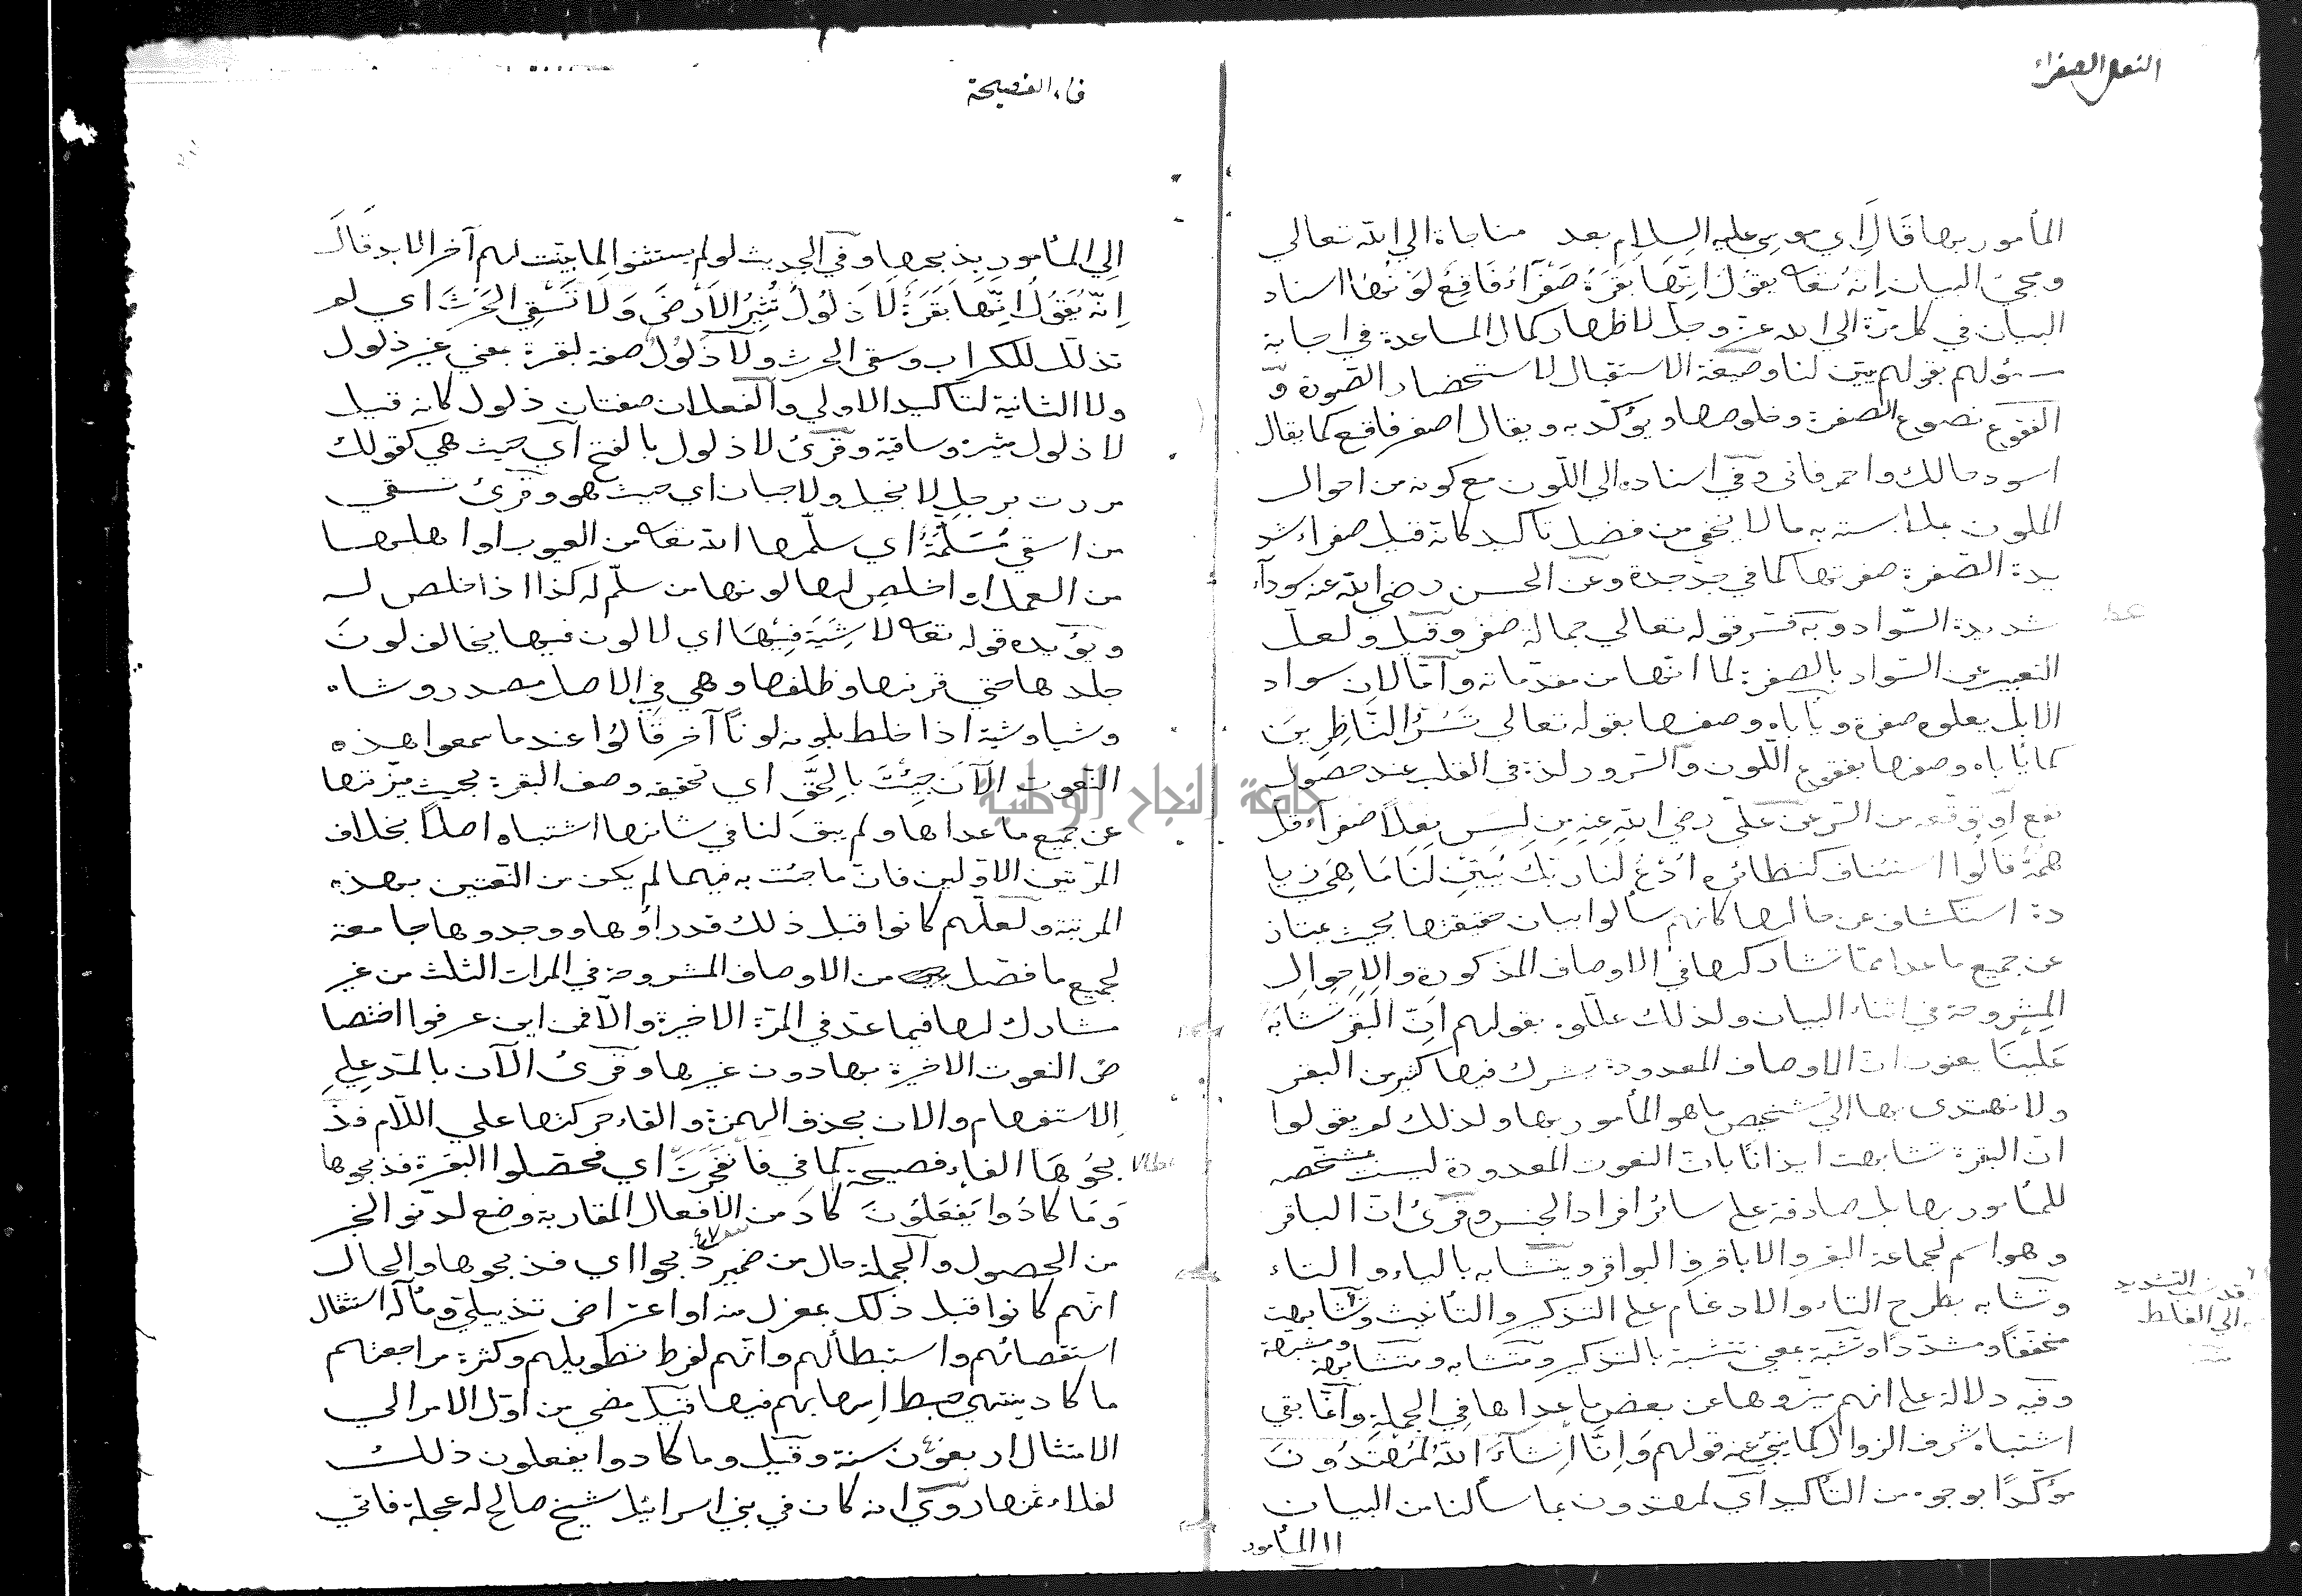 النعل الصفراء
المأمور بها قَالَ اي موسى عليه السلام بعد مناجاة الي الله تعالي
ومجئ البيان اِنَّهُ تعه يقُولُ اِنَّهَا بَقَرَةٌ صَفْرَآءُ فَاقِعٌ لَوْنُهَا اسناد
البيان في كل مرّة الي الله عزّ وجلّ لاظهار كمال المساعدة في اجابة
سئولهم بقولهم يبيّن لنا وصيغة الاستقبال لاستحضار الصّورة وّ
الفقوع نصوع الصفرة وخلوصها ويؤكّد به ويقال اصفر فاقع كما يقال
اسود حالك واحمر قاني وفي اسناده الي اللّون مع كونه من احوال
الملون بملابسته به ما لا يخفي من فضل تأكيد كانّه قيل صفراء شد
يدة الصّفرة صفرتها كما في جدّ جدّه وعن الحسن رضي الله عنه سودآء
شديدة السّواد وبه فسّر قوله تعالي جمالة صفر وقيل ولعلّ
التعبير عن السّواد بالصفرة لما انّها من مقدّماته وامّا لان سواد
الابل يعلوه صفرة ويأباه وصفها بقوله تعالي تَسُرُّ النَّاظِرِينَ
كما يأباه وصفها بفقوع اللّون والسّرور لذة في القلب عند حصول
نفع او توقّعه من السّر عن علّي رضي الله عنه من لبس نعلاً صفرآء قلّ
همّهُ قَالُوا استئناف كنظائره ادْعُ لَنَا رَبَّكَ يُبَيِّنْ لَنَا مَا هِيَ زيا
دة استكشاف عن حالها كانّهم سألوا بيان حقيقتها بحيث يمتاز
عن جميع ما عداها ممّا تشاركها في الاوصاف المذكورة والاحوال
المشروحة في اثناء البيان ولذلك علّلوه بقولهم اِنَّ البَقَرَ تَشَابَهَ
عَلَيْنَا يعنون ان الاوصاف المعدودة يشرك فيها كثير من البقر
ولا نهتدى بها الي تشخيص ما هو المأمور بها ولذلك لم يقولوا
انّ البقرة تشابهت ايذانًا بانّ النعوت المعدودة ليست بمشخصه
للمأمور بها بل صادقة علي سائر افراد الجنس وقرئ انّ الباقر
وهو اسم لجماعة البقر والاباقر والبواقر ويتشابه بالياء والتاء
وتشّابه بطرح التاء والادغام علي التذكير والتأنيث وتشابهت
مخففًا ومشدّدًا وتشبّه بمعني تتشبه بالتذكير ومتشابه ومتشابهة ومتشبهة
وفيه دلالة علي انهم ميّزوها عن بعض ما عداها في الجملة وانّما بقي
اشتباه شرف الزوال كما ينبئ عنه قولهم وَاِنَّا اِنْ شَآءَ اللهُ لَمُهْتَدُونَ
مؤكّدًا بوجوه من التّأكيد اي لمهتدون بما سألنا من البيان
١١ المأمور
التشديد
الي الغلط
فاء الفصيحة
الي المأمور بذبحها وفي الحديث لو لم يستثنوا لما بيّنت لهم آخر الابد قَالَ
اِنَّه يَقُولُ اِنّهَا بَقَرَةٌ لَا ذَلُولٌ تُثِيرُ الاَرْضَ وَلَا تَسْقِي الحَرْثَ اي لم
تذلّل للكراب وسقي الحرث ولا ذَلُولٌ صفة لبقرة بمعني غير ذلول
ولا الثانية لتأكيد الاولي والفعلان صفتان ذلول كانه قيل
لا ذلول مثيرة وساقية وقرئ لا ذلول بالفتح اي حيث هي كقولك
مررت برجل لا بخيل ولا جبان اي حيث هو وقرئ تسقي
من اسقي مُسَلَّمَةٌ اي سلّمها الله تعه من العيوب او اهلها
من العمل او اخلص لها لونها من سلّم له كذا اذا خلص له
ويؤيده قوله تعه لا شِيَةَ فِيْهَا اي لا لون فيها يخالف لونَ
جلدها حتي قرنها وظلفها وهي في الاصل مصدر وشاه
وشيا وشية اذا خلط بلونه لونًا آخر قَالُوْا عندما سمعوا هذه
النّعوت الآنَ جِئْتَ بِالحَقِّ اي تحقيقه وصف البقرة بحيث ميّزتها
عن جميع ما عداها ولم يبق لنا في شانها اشتباه اصلاً بخلاف
المرّتين الاوّلين فانّ ما جئت به فيهما لم يكن من التعيّن بهذه
المرتبة ولعلّهم كانوا قبل ذلك قد رأوها ووجدوها جامعة
لجميع ما فصّل من الاوصاف المشروحة في المرات الثلث من غير
مشارك لها فيما عدّ في المرّة الاخيرة والّا فمن اين عرفوا اختصا
ص النعوت الاخيرة بها دون غيرها وقرئ الآن بالمدّ علي
الاستفهام والان بحذف الهمزة والقاء حركتها علي اللّام فذَ
بَحُوْهَا الفاء فصيحة كما في فانْفَجَرَتْ اي فحصّلوا البقرة فذبحوها
وَمَا كادُوا يَفْعَلُونَ كاد من الافعال المقاربة وضع لدنوّ الخبر
من الحصول والجملة حال من ضمير ذبحوا اي فذبحوها والحال
انّهم كانوا قبل ذلك بمعزل منه او اعتراض تذييليّ ومآله استثقال
استقصائهم واستبطألهم وانّهم لفرط تطويلهم وكثرة مراجعتهم
ما كاد ينتهي خيط اسهابهم فيها قيل مضي من اوّل الامر الي
الامتثال اربعون سنة وقيل وما كادوا يفعلون ذلك
لغلاء ثمنها روي انه كان في بني اسرائيل شيخ صالح له عجلة فاتي
جامعة النجاح الوطنية